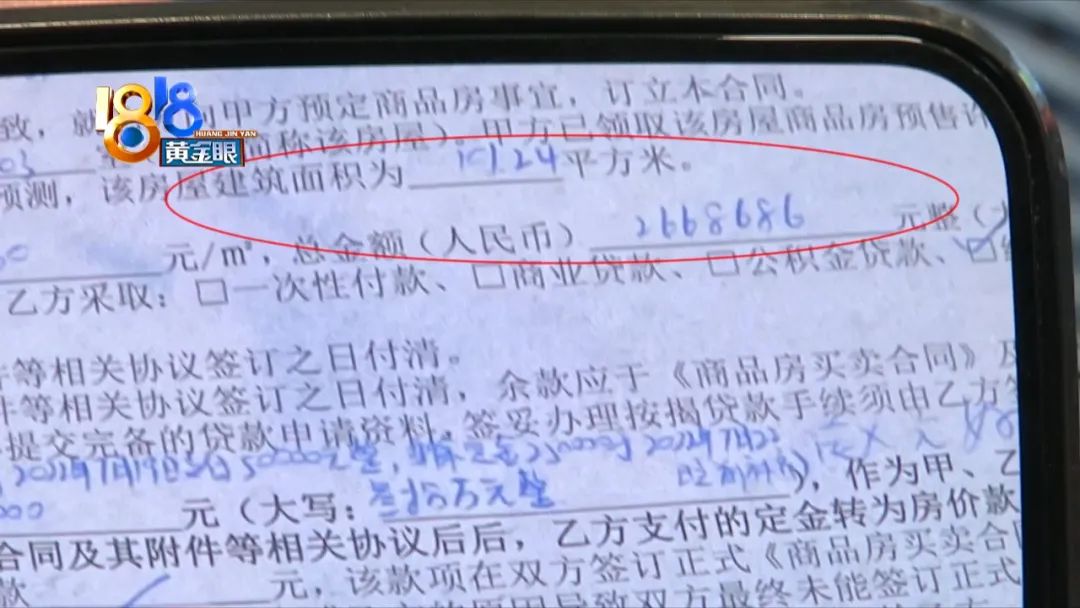 1818
HUANG JIN YAN
黄金眼
向甲方预定商品房事宜，订立本合同。
简称该房屋）。甲方已领取该房屋商品房预售许
预测，该房屋建筑面积为 101.24 平方米。
元/㎡，总金额（人民币） 2668686 元整（大
乙方采取：□一次性付款、□商业贷款、□公积金贷款、☑
件等相关协议签订之日付清。
件等相关协议签订之日付清，余款应于《商品房买卖合同》及
提交完备的贷款申请资料，签妥办理按揭贷款手续须由乙方
50000元整， 250000
000 元（大写：叁拾万元整 ），作为甲、乙
合同及其附件等相关协议后后，乙方支付的定金转为房价款
款 元，该款项在双方签订正式《商品房买卖合同
原因导致双方最终未能签订正式